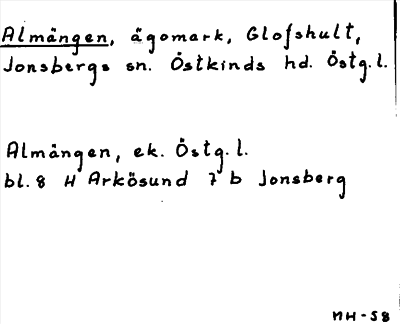 Almängen, ägomark, Glofshult,
Jonsbergs sn. Östkinds hd. Östg.l.
Almängen, ek. Östg.l.
bl. 8 H Arkösund 7 b Jonsberg
MH-58